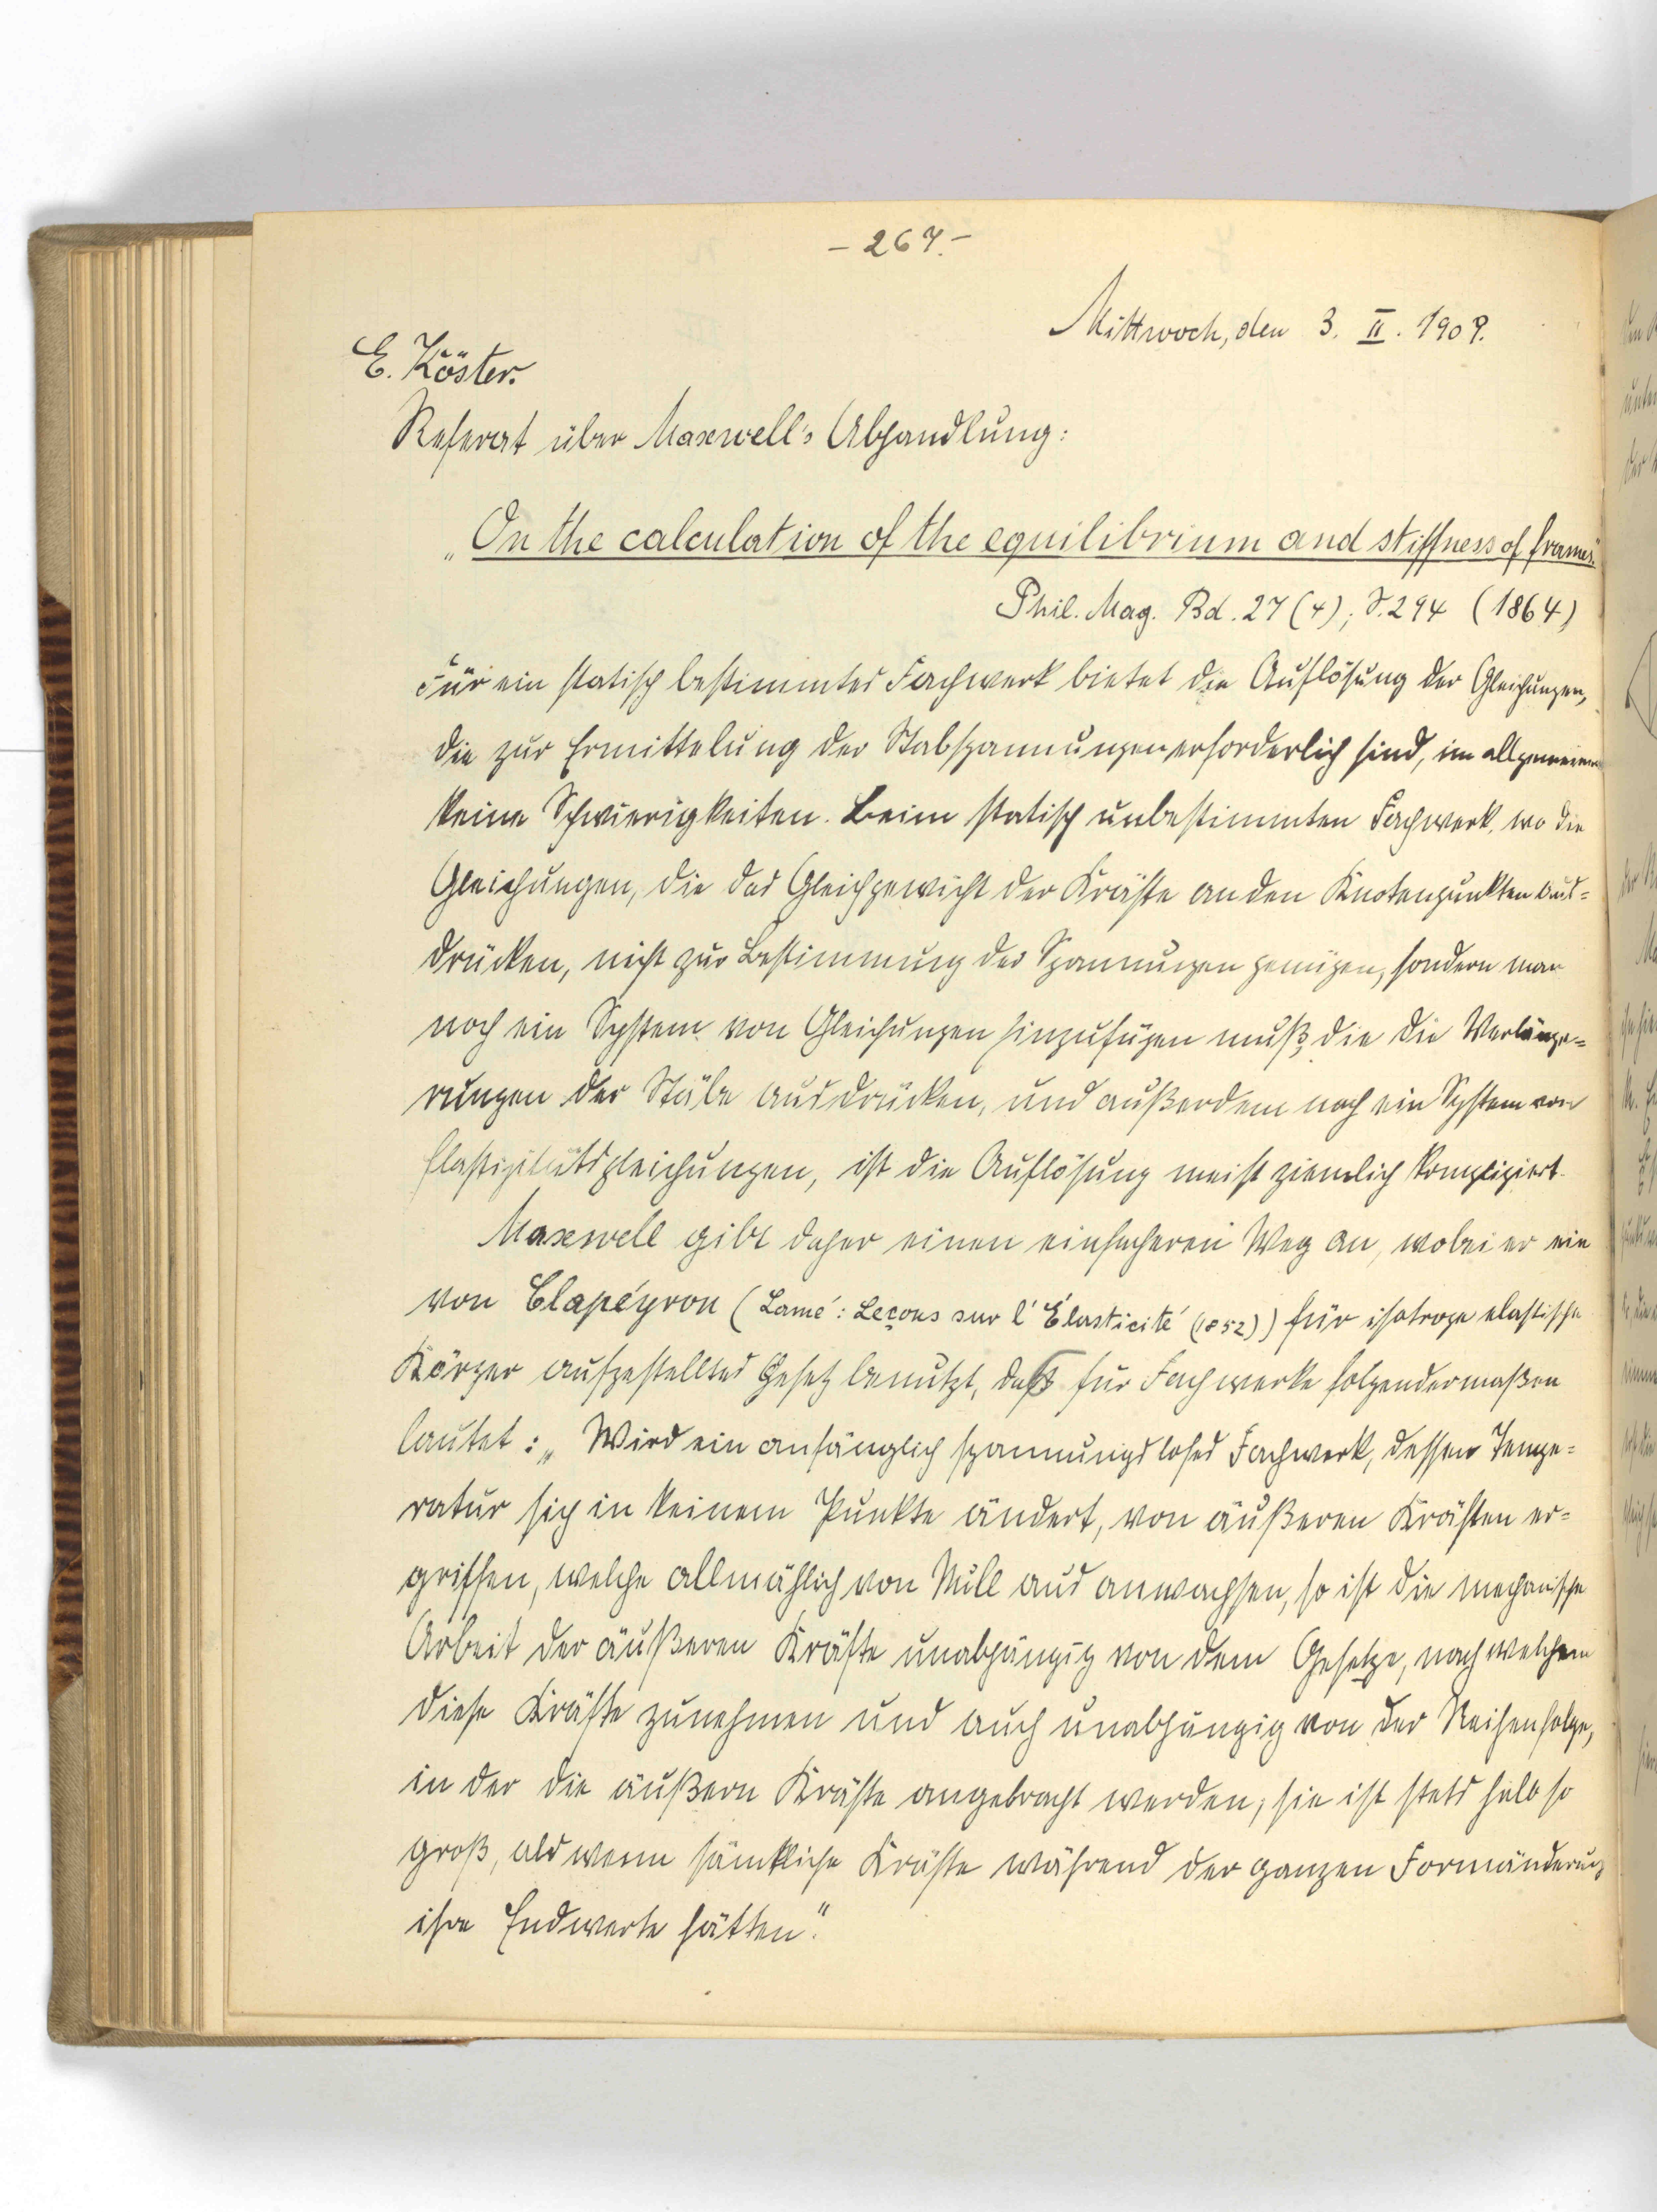 - 267. -
Mittwoch, den 3. II. 1909.
E. Köster.
Referat über Maxwell's Abhandlung:
„On the calculation of the equilibrium and stiffness of frames."
Phil. Mag. Bd. 27 (4); S. 294 (1864)
Für ein statisch bestimmtes Fachwerk bietet die Auflösung der Gleichungen,
die zur Ermittelung der Stabspannungen erforderlich sind, im allgemeinen
keine Schwierigkeiten. Beim statisch unbestimmten Fachwerk, wo die
Gleichungen, die das Gleichgewicht der Kräfte an den Knotenpunkten aus=
drücken, nicht zur Bestimmung der Spannungen genügen, sondern man
noch ein System von Gleichungen hinzufügen muß, die die Verlänge=
rungen der Stäbe ausdrücken, und außerdem noch ein System von
Elastizitätsgleichungen, ist die Auflösung meist ziemlich kompliziert.
Maxwell gibt daher einen einfacheren Weg an, wobei er ein
von Clapéyron (Lamé: Leçons sur l'Élasticité (1852)) für isotrope elastische
Körper aufgestelltes Gesetz benutzt, das für Fachwerke folgendermaßen
lautet: „Wird ein anfänglich spannungsloses Fachwerk, dessen Tempe=
ratur sich in keinem Punkte ändert, von äußeren Kräften er=
griffen, welche allmählich von Null aus anwachsen, so ist die mechanische
Arbeit der äußeren Kräfte unabhängig von dem Gesetze, nach welchem
diese Kräfte zunehmen und auch unabhängig von der Reihenfolge,
in der die äußern Kräfte angebracht werden; sie ist stets halb so
groß, als wenn sämtliche Kräfte während der ganzen Formänderung
ihre Endwerte hätten."